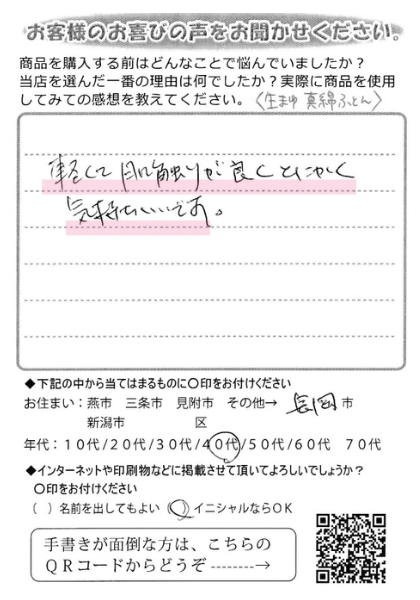 お客様のお喜びの声をお聞かせください。
商品を購入する前はどんなことで悩んでいましたか？
当店を選んだ一番の理由は何でしたか？実際に商品を使用
してみての感想を教えてください。〈生まゆ 真綿ふとん〉
軽くて肌触りが良くとにかく
気持ちいいです。
◆下記の中から当てはまるものに〇印をお付けください
お住まい：燕市 三条市 見附市 その他→ 長岡 市
新潟市 区
年代：１０代/２０代/３０代/４０代/５０代/６０代 ７０代
◆インターネットや印刷物などに掲載させて頂いてよろしいでしょうか？
〇印をお付けください
（ ）名前を出してもよい （〇）イニシャルならＯＫ
手書きが面倒な方は、こちらの
ＱＲコードからどうぞ--------→